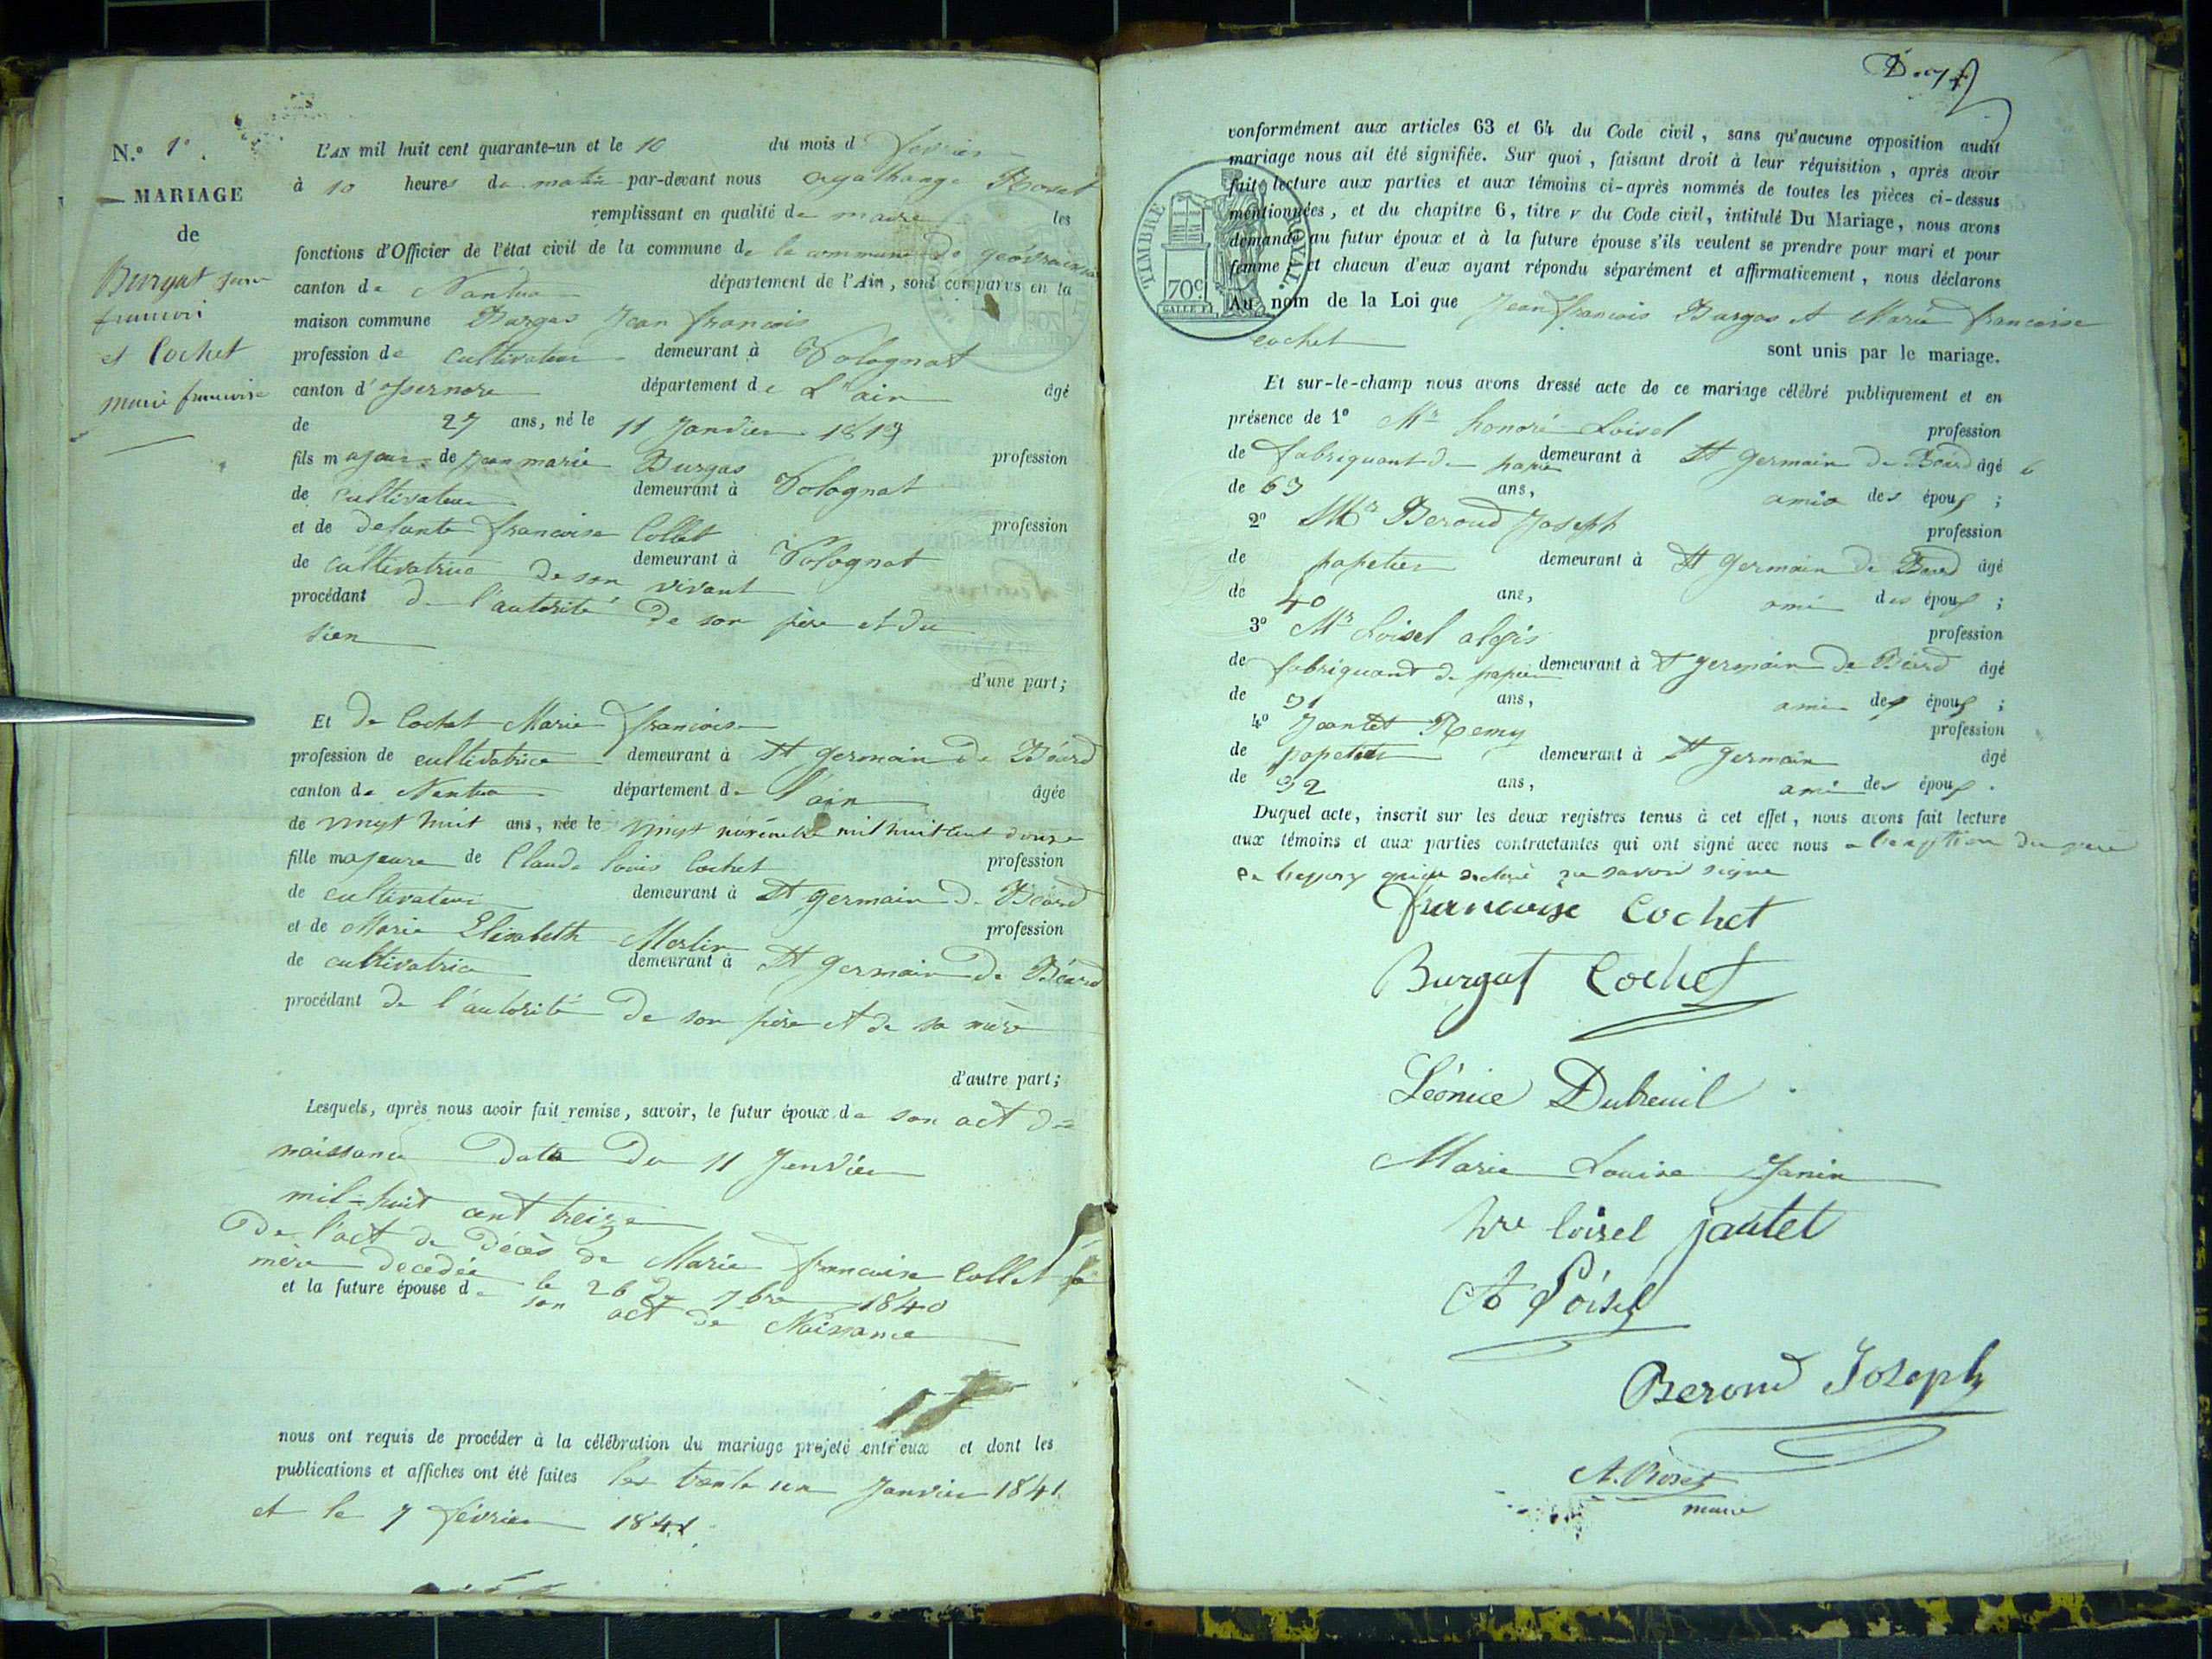 N.º 1º.
MARIAGE
de
Burgat jean
francois
et Cochet
marie francoise
L'AN mil huit cent quarante-un et le 10 du mois d fevrier
à 10 heures du matin par-devant nous agathange Rozet
remplissant en qualité de maire les
fonctions d'Officier de l'état civil de la commune de la commune de
canton de Nantua département de l'Ain, sont comparus en la
maison commune Burgas Jean francois
profession de cultivateur demeurant à Volognat
canton d'isernore département de L'ain âgé
de 27 ans, né le 11 Janvier 1813
fils majeur de jean marie Burgas profession
de cultivateur demeurant à Volognat
et de defunte francoise Collet profession
de cultivatrice de son vivant demeurant à Volognat
procédant de l'autorité de son père et du
sien
d'une part;
Et de Cochet Marie francoise
profession de cultivatrice demeurant à St germain de Béard
canton de Nantua département de l'ain âgée
de vingt huit ans, née le vingt novembre mil huit cent douze
fille majeure de Claude louis Cochet profession
de cultivateur demeurant à St germain de Béard
et de Marie Elisabeth Merlin profession
de cultivatrice demeurant à St germain de Béard
procédant de l'autorité de son père et de sa mère
d'autre part;
Lesquels, après nous avoir fait remise, savoir, le futur époux de son act de
naissance date du 11 Janvier
mil-huit cent treize
De l'act de décès de Marie francoise Collet sa
mère decedée le 26 de 7bre 1840
et la future épouse de son act de Naissance
nous ont requis de procéder à la célébration du mariage projeté entr'eux et dont les
publications et affiches ont été faites les trente un Janvier 1841
et le 7 février 1841.
conformément aux articles 63 et 64 du Code civil, sans qu'aucune opposition audit
mariage nous ait été signifiée. Sur quoi, faisant droit à leur réquisition, après avoir
fait lecture aux parties et aux témoins ci-après nommés de toutes les pièces ci-dessus
mentionnées, et du chapitre 6, titre v du Code civil, intitulé Du Mariage, nous avons
demandé au futur époux et à la future épouse s'ils veulent se prendre pour mari et pour
femme; et chacun d'eux ayant répondu séparément et affirmativement, nous déclarons
TIMBRE ROYAL.
70c
Au nom de la Loi que Jean francois Burgas et Marie francoise
cochet sont unis par le mariage.
Et sur-le-champ nous avons dressé acte de ce mariage célébré publiquement et en
présence de 1º Mr honoré Loisel profession
de fabriquant de papier demeurant à St germain de Béard âgé
de 63 ans, amis des époux;
2º Mr Beroud Joseph profession
de papetier demeurant à St germain de Béard âgé
de 40 ans, ami des époux;
3º Mr Loisel profession
de fabriquant de papier demeurant à St germain de Béard âgé
de 31 ans, ami des époux;
4º Jeantet Remy profession
de papetier demeurant à St germain âgé
de 32 ans, ami des époux.
Duquel acte, inscrit sur les deux registres tenus à cet effet, nous avons fait lecture
aux témoins et aux parties contractantes qui ont signé avec nous
savoir signe
francoise Cochet
Burgat Cochet
Léonice Dubreuil
Marie Louise Janin
hre loisel jantet
At Loisel
Beroud Joseph
A. Rozet
maire